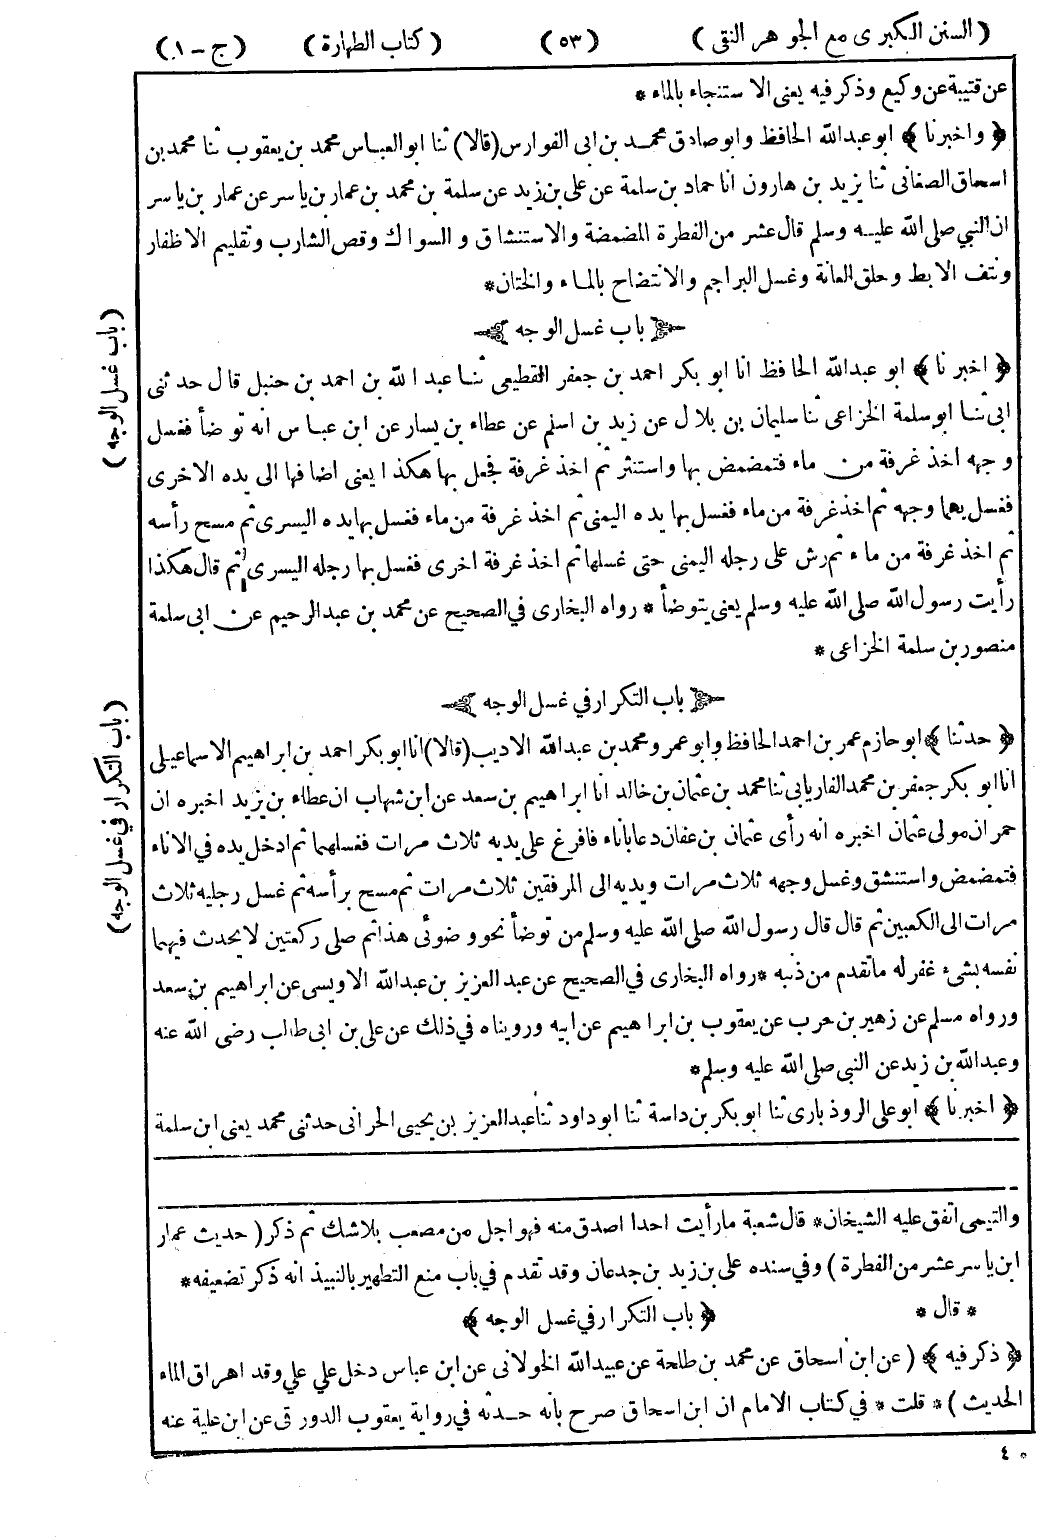 ( السنن الكبرى مع الجوهر النقى ) ( ٥٣ ) ( كتاب الطهارة ) ( ج - ١ )
عن قتيبة عن وكيع وذكر فيه يعنى الاستنجاء بالماء *
﴿ واخبرنا ﴾ ابو عبدالله الحافظ وابو صادق محمد بن ابى الفوارس (قالا) ثنا ابو العباس محمد بن يعقوب ثنا محمد بن
اسحاق الصغانى ثنا يزيد بن هارون انا حماد بن سلمة عن على بن زيد عن سلمة بن محمد بن عمار بن ياسر عن عمار بن ياسر
ان النبي صلى الله عليه وسلم قال عشر من الفطرة المضمضة والاستنشاق والسواك وقص الشارب وتقليم الاظفار
ونتف الابط وحلق العانة وغسل البراجم والانتضاح بالماء والختان*
باب غسل الوجه
( باب غسل الوجه )
﴿ اخبرنا ﴾ ابو عبدالله الحافظ انا ابو بكر احمد بن جعفر القطيعى ثنا عبد الله بن احمد بن حنبل قال حدثنى
ابى ثنا ابو سلمة الخزاعى ثنا سليمان بن بلال عن زيد بن اسلم عن عطاء بن يسار عن ابن عباس انه توضأ فغسل
وجهه اخذ غرفة من ماء فتمضمض بها واستنثر ثم اخذ غرفة فجعل بها هكذا يعنى اضافها الى يده الاخرى
فغسل بهما وجهه ثم اخذ غرفة من ماء فغسل بها يده اليمنى ثم اخذ غرفة من ماء فغسل بها يده اليسرى ثم مسح رأسه
ثم اخذ غرفة من ماء ثم رش على رجله اليمنى حتى غسلها ثم اخذ غرفة اخرى فغسل بها رجله اليسرى ثم قال هكذا
رأيت رسول الله صلى الله عليه وسلم يعنى يتوضأ * رواه البخارى في الصحيح عن محمد بن عبدالرحيم عن ابى سلمة
منصور بن سلمة الخزاعى *
باب التكرار في غسل الوجه
( باب التكرار في غسل الوجه )
﴿ حدثنا ﴾ ابو حازم عمر بن احمد الحافظ وابو عمرو محمد بن عبدالله الاديب (قالا) انا ابو بكر احمد بن ابراهيم الاسماعيلى
انا ابو بكر جعفر بن محمد الفاريابى ثنا محمد بن عثمان بن خالد انا ابراهيم بن سعد عن ابن شهاب ان عطاء بن يزيد اخبره ان
حمران مولى عثمان اخبره انه رأى عثمان بن عفان دعا باناء فافرغ على يديه ثلاث مرات فغسلهما ثم ادخل يده في الاناء
فتمضمض واستنشق وغسل وجهه ثلاث مرات ويديه الى المرفقين ثلاث مرات ثم مسح برأسه ثم غسل رجليه ثلاث
مرات الى الكعبين ثم قال قال رسول الله صلى الله عليه وسلم من توضأ نحو وضوئى هذا ثم صلى ركعتين لا يحدث فيهما
نفسه بشىء غفر له ما تقدم من ذنبه * رواه البخارى في الصحيح عن عبد العزيز بن عبدالله الاويسى عن ابراهيم بن سعد
ورواه مسلم عن زهير بن حرب عن يعقوب بن ابراهيم عن ابيه ورويناه في ذلك عن على بن ابى طالب رضى الله عنه
وعبدالله بن زيد عن النبى صلى الله عليه وسلم*
﴿ اخبرنا ﴾ ابو على الروذبارى ثنا ابو بكر بن داسة ثنا ابو داود ثنا عبدالعزيز بن يحيى الحرانى حدثنى محمد يعنى ابن سلمة
والتيمى اتفق عليه الشيخان* قال شعبة ما رأيت احدا اصدق منه فهو اجل من مصعب بلا شك ثم ذكر ( حديث عمار
ابن ياسر عشر من الفطرة ) وفي سنده على بن زيد بن جدعان وقد تقدم في باب منع التطهير بالنبيذ انه ذكر تضعيفه*
* قال * ﴿ باب التكرار في غسل الوجه ﴾
﴿ ذكر فيه ﴾ ( عن ابن اسحاق عن محمد بن طلحة عن عبيدالله الخولانى عن ابن عباس دخل على علي وقد اهراق الماء
الحديث )* قلت * في كتاب الامام ان ابن اسحاق صرح بانه حدثه في رواية يعقوب الدورقى عن ابن علية عنه
* ٤